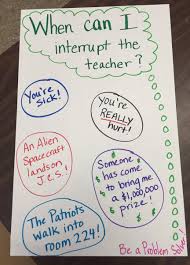 When can I
interrupt the
teacher?
You're
Sick!
You're
REALLY
hurt!
An Alien
Spacecraft
lands on
J.E.S.!
Someone
has come
to bring me
a $1,000,000
prize!
The Patriots
walk into
room 224!
Be a Problem Solver